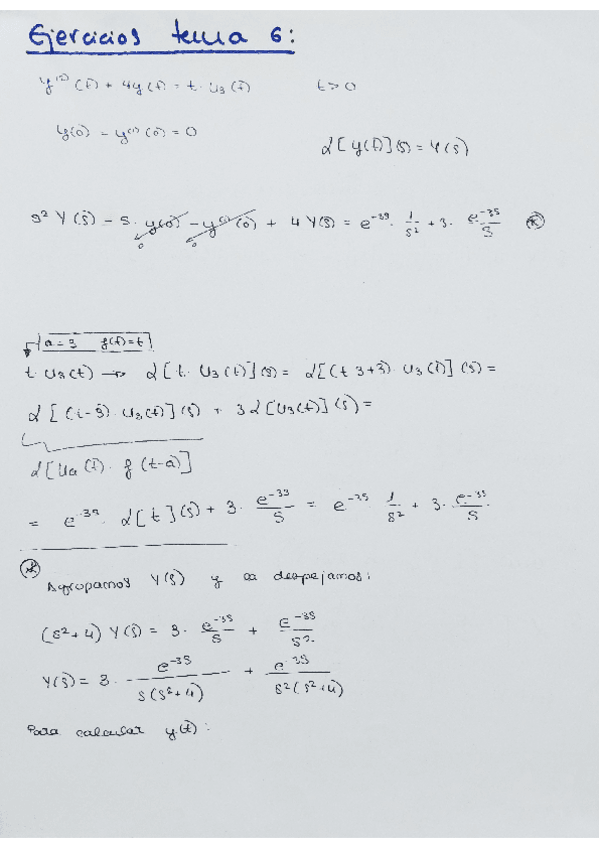 Ejercicios tema 6:
y⁽²⁾(t) + 4y(t) = t · u₃(t)    t > 0
y(0) = y⁽¹⁾(0) = 0
ℒ[y(t)](s) = Y(s)
s² Y(s) - s · y(0) - y⁽¹⁾(0) + 4 Y(s) = e⁻³ˢ · 1/s² + 3 · e⁻³ˢ/s (*)
0 0
a = 3 f(t) = t
t · u₃(t) → ℒ[t · u₃(t)](s) = ℒ[(t-3+3) · u₃(t)](s) =
ℒ[(t-3) · u₃(t)](s) + 3ℒ[u₃(t)](s) =
ℒ[uₐ(t) · f(t-a)]
= e⁻³ˢ · ℒ[t](s) + 3 · e⁻³ˢ/s = e⁻³ˢ · 1/s² + 3 · e⁻³ˢ/s
(*) Agrupamos Y(s) y la despejamos:
(s²+4) Y(s) = 3 · e⁻³ˢ/s + e⁻³ˢ/s²
Y(s) = 3 · e⁻³ˢ/s(s²+4) + e⁻³ˢ/s²(s²+4)
Para calcular y(t):